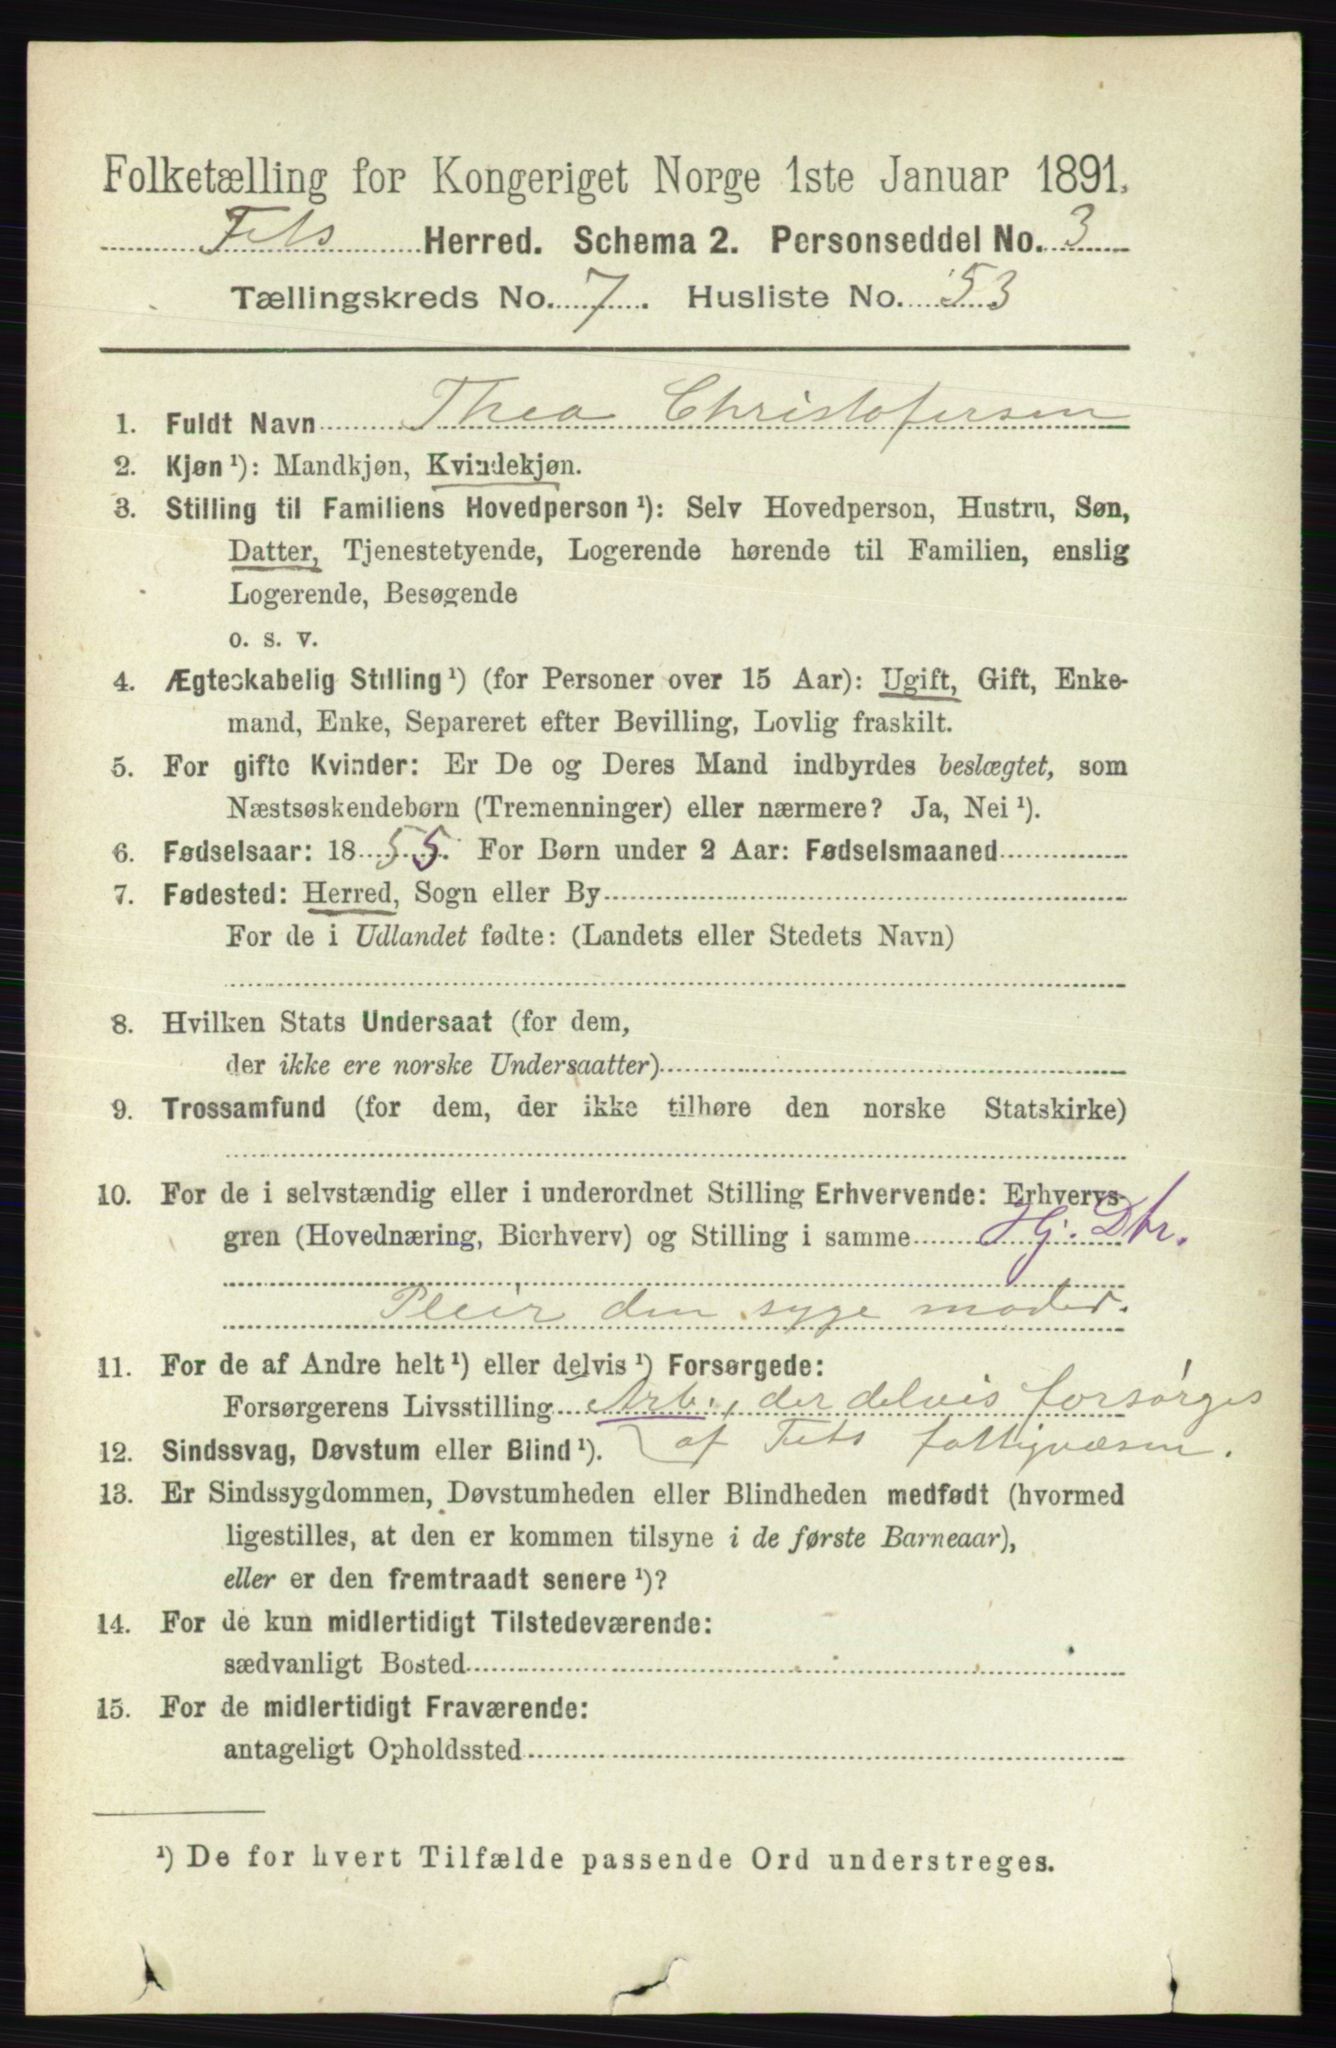 Folketælling for Kongeriget Norge 1ste Januar 1891.
Fets Herred. Schema 2. Personseddel No. 3
Tællingskreds No. 7. Husliste No. 53
1. Fuldt Navn Thea Christofersen
2. Kjøn¹): Mandkjøn, Kvindekjøn.
3. Stilling til Familiens Hovedperson¹): Selv Hovedperson, Hustru, Søn,
Datter, Tjenestetyende, Logerende hørende til Familien, enslig
Logerende, Besøgende
o. s. v.
4. Ægteskabelig Stilling¹) (for Personer over 15 Aar): Ugift, Gift, Enke-
mand, Enke, Separeret efter Bevilling, Lovlig fraskilt.
5. For gifte Kvinder: Er De og Deres Mand indbyrdes beslægtet, som
Næstsøskendebørn (Tremenninger) eller nærmere? Ja, Nei¹).
6. Fødselsaar: 1855. For Børn under 2 Aar: Fødselsmaaned
7. Fødested: Herred, Sogn eller By
For de i Udlandet fødte: (Landets eller Stedets Navn)
8. Hvilken Stats Undersaat (for dem,
der ikke ere norske Undersaatter)
9. Trossamfund (for dem, der ikke tilhøre den norske Statskirke)
10. For de i selvstændig eller i underordnet Stilling Erhvervende: Erhvervs-
gren (Hovednæring, Bierhverv) og Stilling i samme Hj. Dtr.
Pleir den syge moder.
11. For de af Andre helt¹) eller delvis¹) Forsørgede:
Forsørgerens Livsstilling Arb., der delvis forsørges
af Fets fattigvæsen.
12. Sindssvag, Døvstum eller Blind¹).
13. Er Sindssygdommen, Døvstumheden eller Blindheden medfødt (hvormed
ligestilles, at den er kommen tilsyne i de første Barneaar),
eller er den fremtraadt senere¹)?
14. For de kun midlertidigt Tilstedeværende:
sædvanligt Bosted
15. For de midlertidigt Fraværende:
antageligt Opholdssted
¹) De for hvert Tilfælde passende Ord understreges.